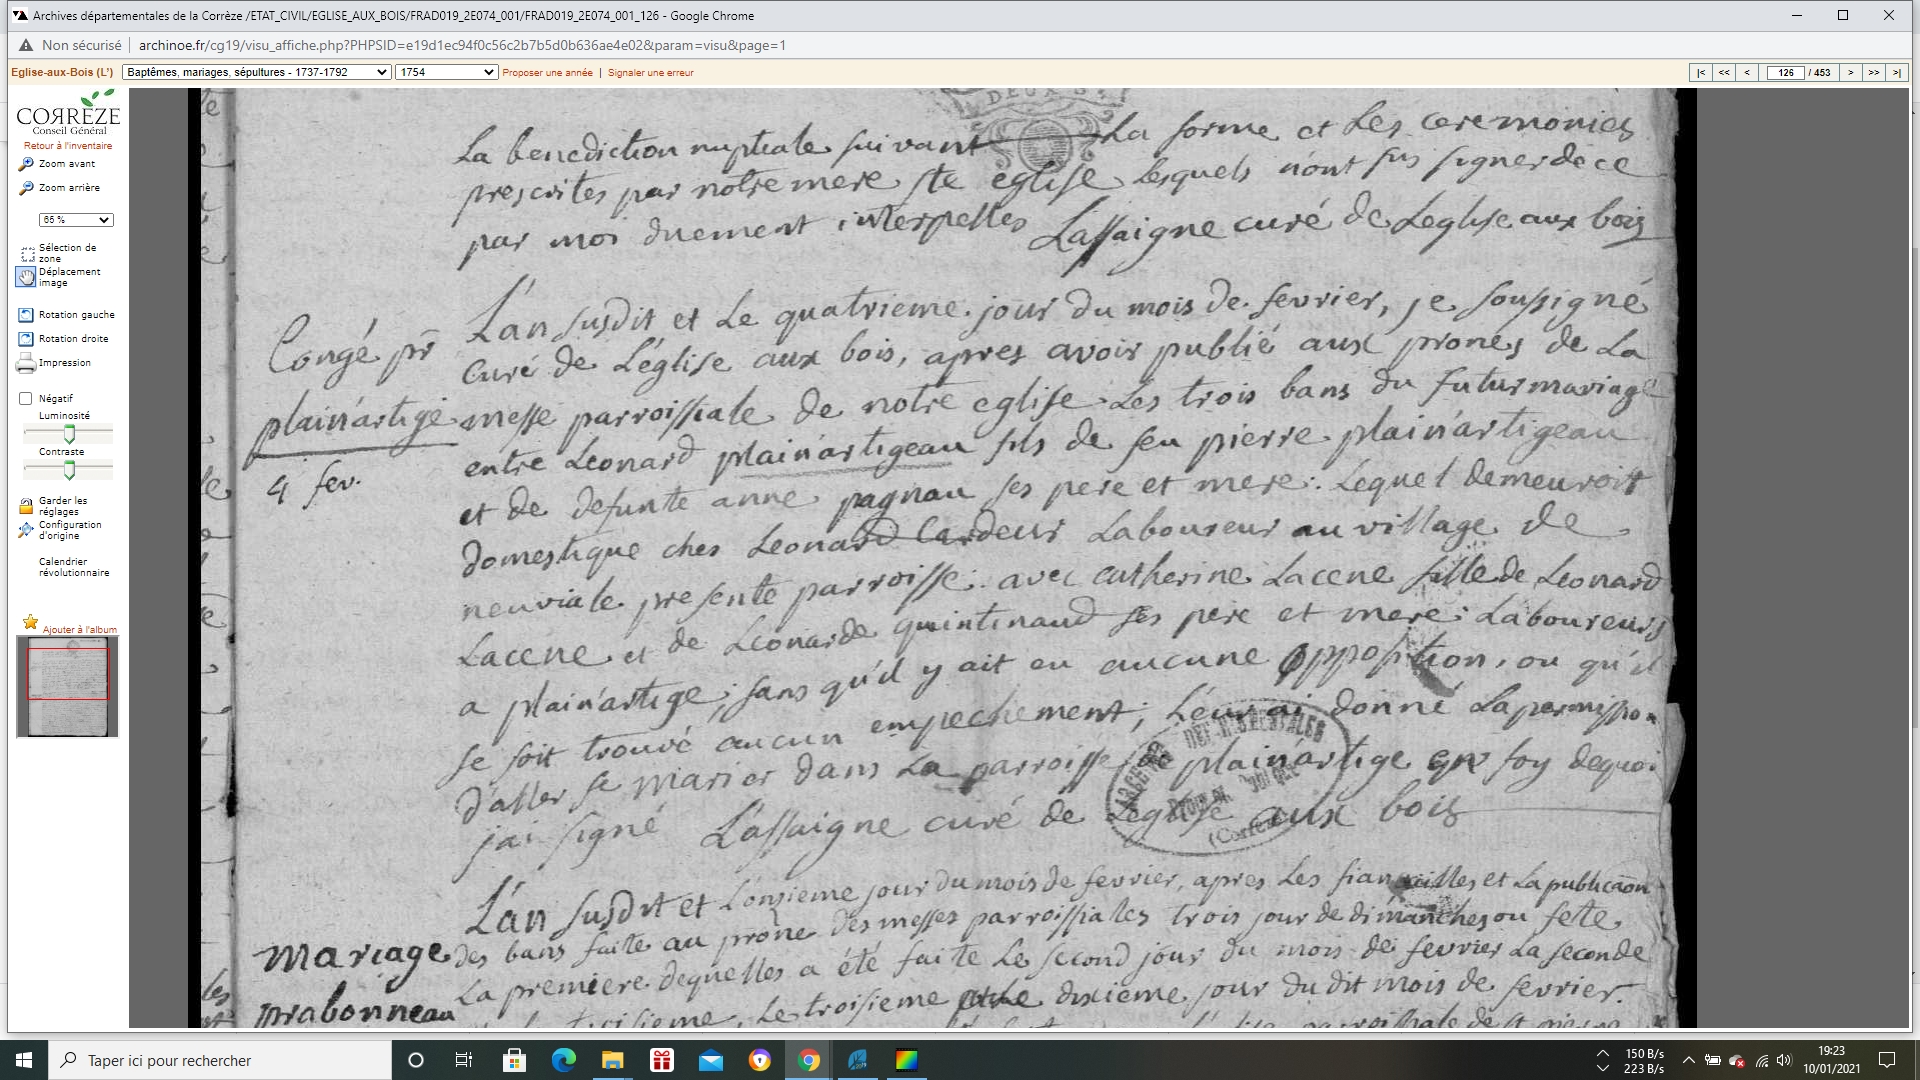 Archives départementales de la Corrèze /ETAT_CIVIL/EGLISE_AUX_BOIS/FRAD019_2E074_001/FRAD019_2E074_001_126 - Google Chrome
Non sécurisé | archinoe.fr/cg19/visu_affiche.php?PHPSID=e19d1ec94f0c56c2b7b5d0b636ae4e02&param=visu&page=1
Eglise-aux-Bois (L') Baptêmes, mariages, sépultures - 1737-1792 1754 Proposer une année | Signaler une erreur |< << < 126 / 453 > >> >|
CORRÈZE
Conseil Général
Retour à l'inventaire
Zoom avant
Zoom arrière
65 %
Sélection de
zone
Déplacement
image
Rotation gauche
Rotation droite
Impression
Négatif
Luminosité
Contraste
Garder les
réglages
Configuration
d'origine
Calendrier
révolutionnaire
Ajouter à l'album
DEUX S
La benediction nuptiale suivant La forme et Les ceremonies
prescrites par notre mere ste eglise Lesquels n'ont sus signer de ce
par moi duement interpellés Lassaigne curé de Leglise aux bois
Congé pr
plain'artige
4 fev.
L'an susdit et Le quatrieme jour du mois de fevrier, je soussigné
Curé de L'église aux bois, apres avoir publié aux prones de La
messe parroissiale de notre eglise Les trois bans du futur mariage
entre Leonard plain'artigeau fils de feu pierre plain'artigeau
et de defunte anne pagnau ses pere et mere: Lequel demeuroit
domestique ches Leonard Cardeur Laboureur au village de
neuviale presente parroisse: avec catherine Lacene fille de Leonard
Lacene et de Leonarde quintinaud ses pere et mere: Laboureurs
a plain'artige; sans qu'il y ait eu aucune opposition, ou qu'il
se soit trouvé aucun empechement; Leur ai donné La permission
d'aller se marier dans La parroisse de plain'artige en foy dequoi
j'ai signé Lassaigne curé de Leglise aux bois
ARCHIVES DEPARTEMENTALES
(Corrèze)
Mariage
prabonneau
L'an susdit et L'onsieme jour du mois de fevrier, apres Les fiansailles et La publicaon
des bans faite au prone des messes parroissiales trois jour de dimanches ou fette
La premiere dequelles a été faite Le second jour du mois de fevrier La seconde
Le troisieme dixieme jour du dit mois de fevrier.
Taper ici pour rechercher
150 B/s
223 B/s
19:23
10/01/2021